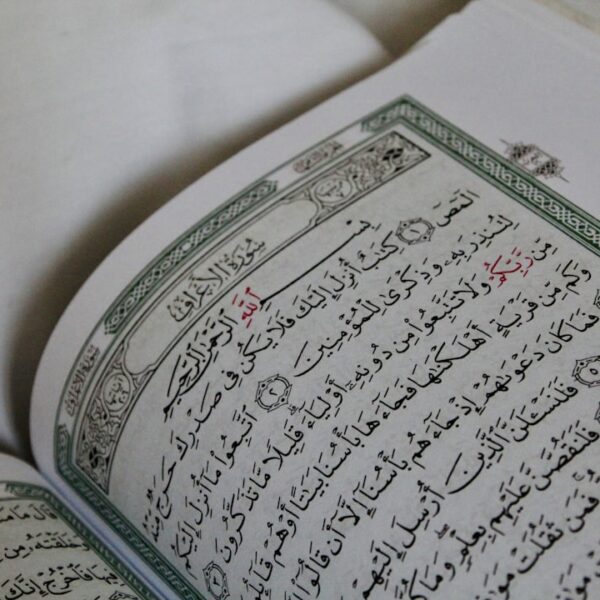 سُورَةُ الأَعْرَافِ
بِسْمِ اللَّهِ الرَّحْمَٰنِ الرَّحِيمِ
الٓمٓصٓ ١ كِتَٰبٌ أُنزِلَ إِلَيْكَ فَلَا يَكُن فِى صَدْرِكَ حَرَجٌ مِّنْهُ
لِتُنذِرَ بِهِۦ وَذِكْرَىٰ لِلْمُؤْمِنِينَ ٢ ٱتَّبِعُوا۟ مَآ أُنزِلَ إِلَيْكُم
مِّن رَّبِّكُمْ وَلَا تَتَّبِعُوا۟ مِن دُونِهِۦٓ أَوْلِيَآءَ ۗ قَلِيلًا مَّا تَذَكَّرُونَ ٣
وَكَم مِّن قَرْيَةٍ أَهْلَكْنَٰهَا فَجَآءَهَا بَأْسُنَا بَيَٰتًا أَوْ هُمْ
فَمَا كَانَ دَعْوَىٰهُمْ إِذْ جَآءَهُم بَأْسُنَآ إِلَّآ أَن قَالُوٓا۟
٥ فَلَنَسْـَٔلَنَّ ٱلَّذِينَ أُرْسِلَ إِلَيْهِمْ
فَلَنَقُصَّنَّ عَلَيْهِم بِعِلْمٍ ۖ وَمَا
فَمَن ثَقُلَتْ